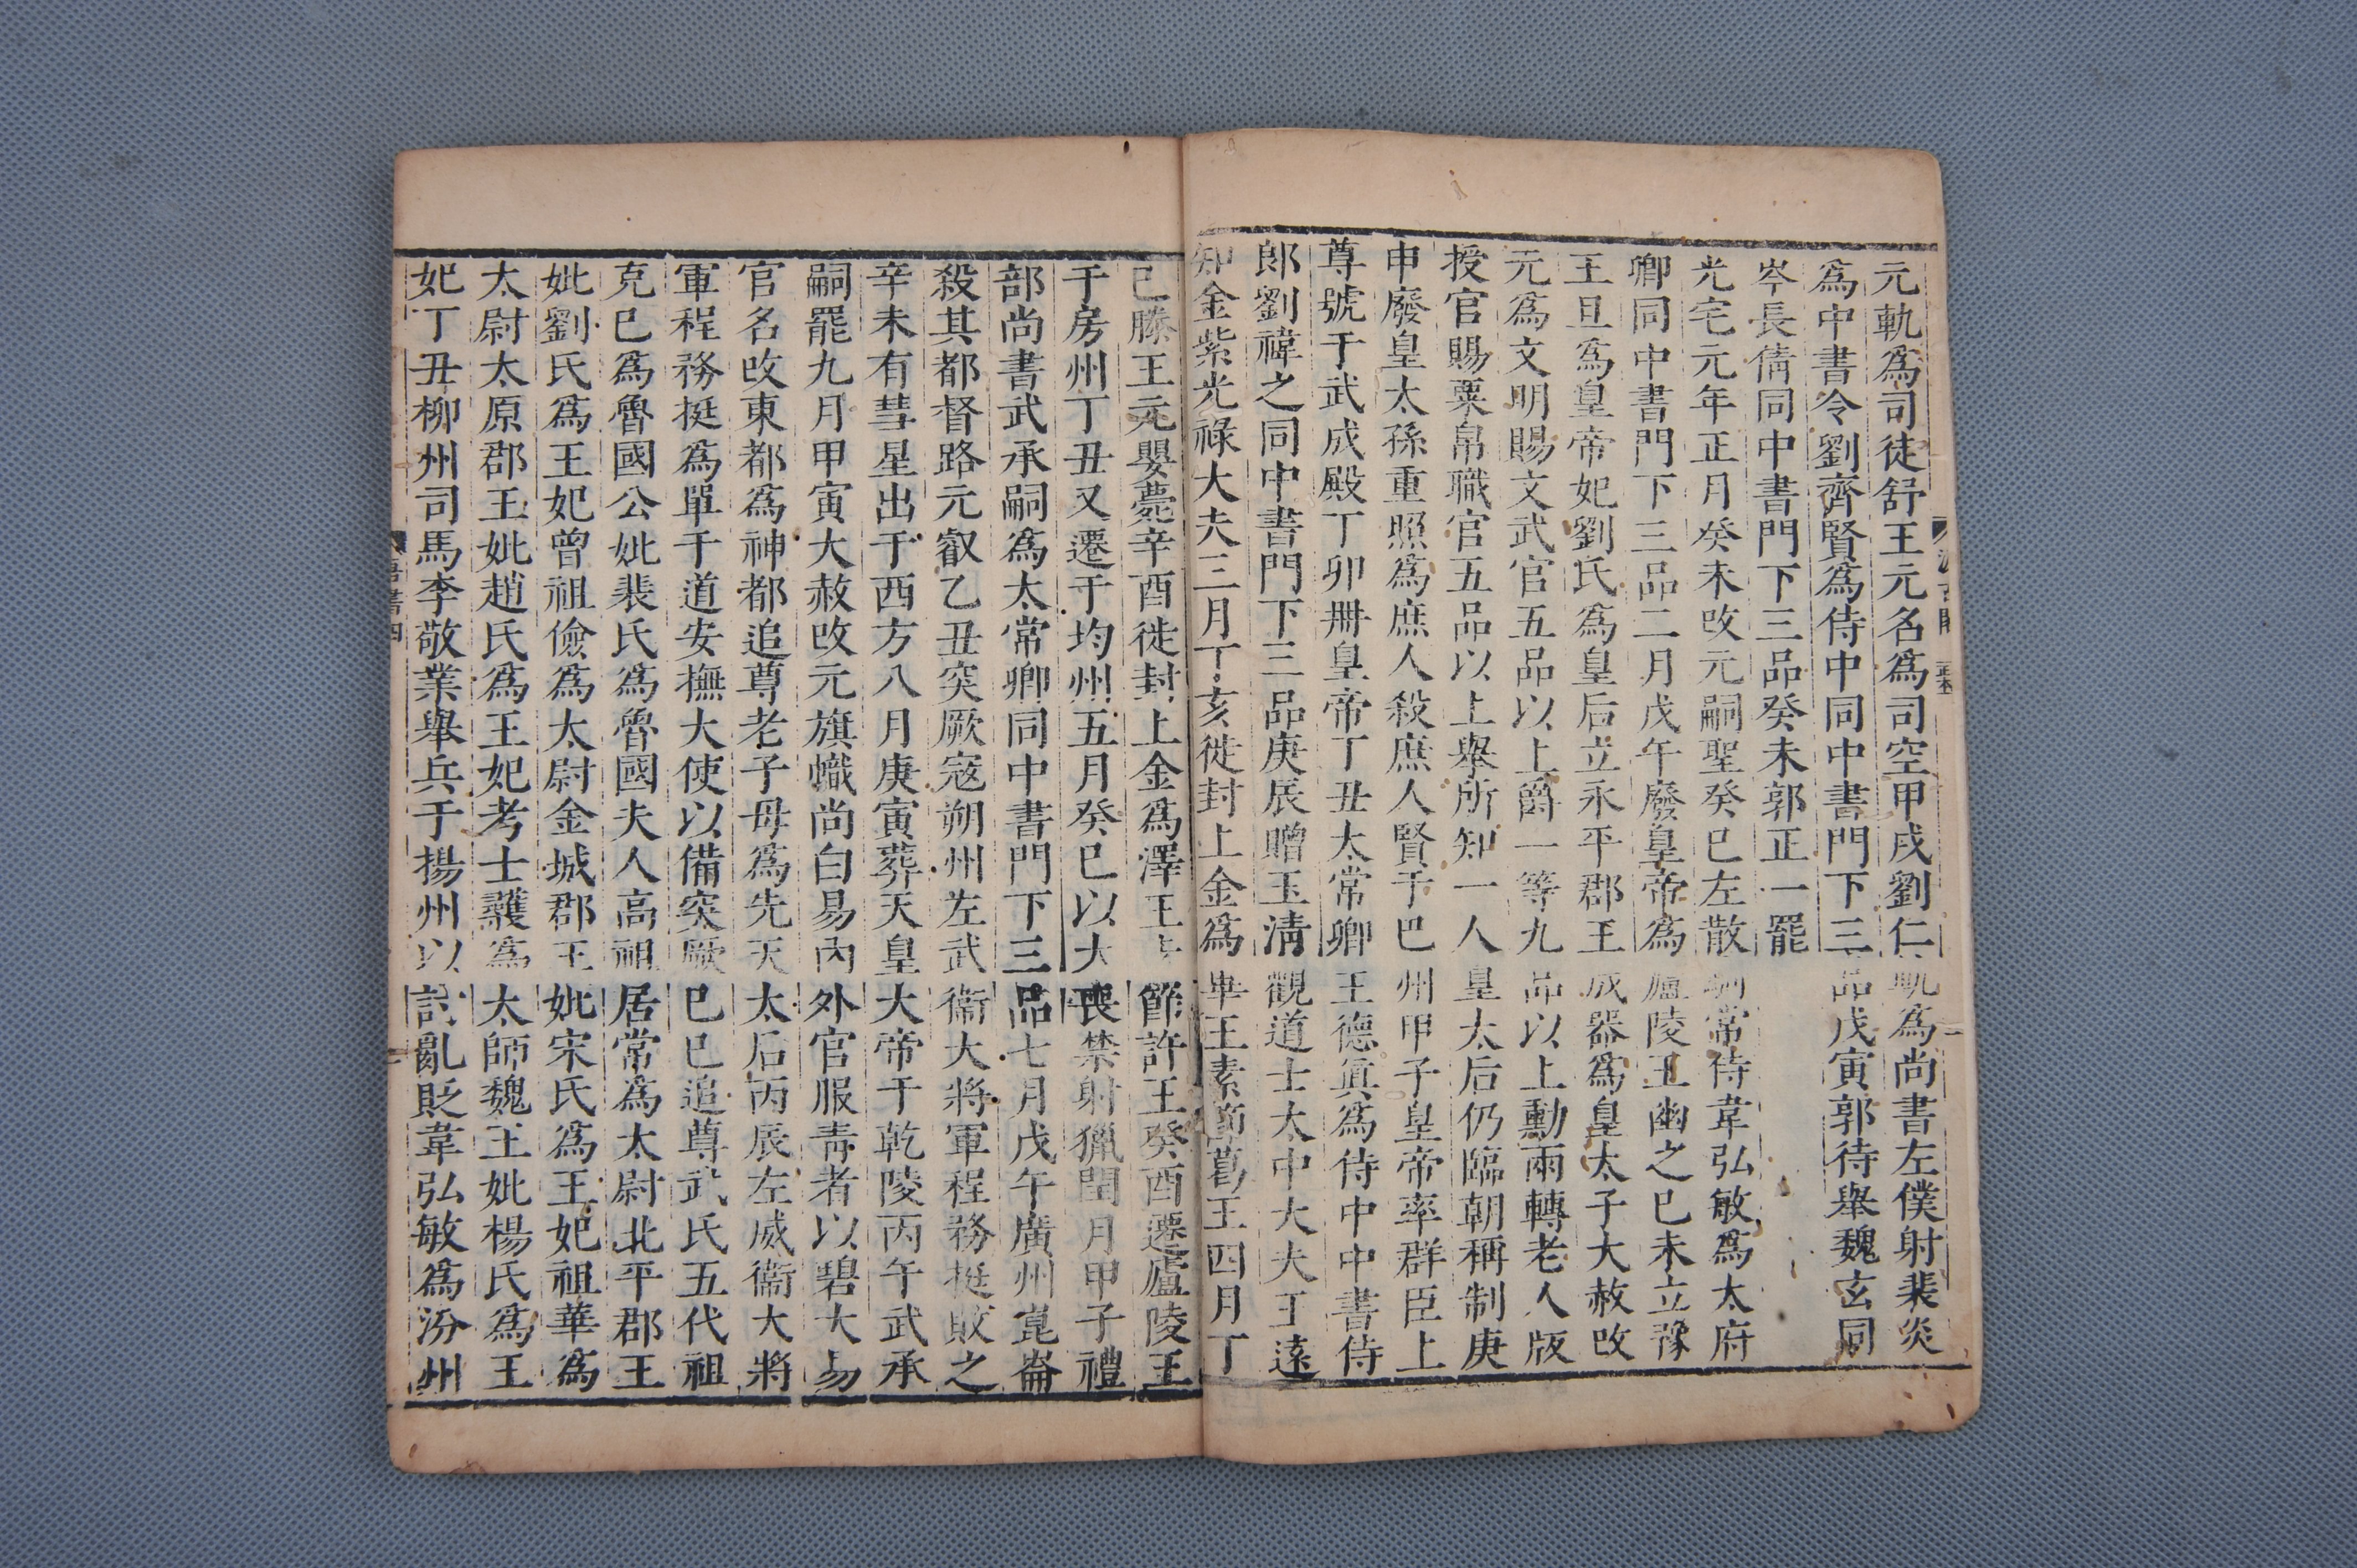 元軌爲司徒舒王元名爲司空甲戌劉仁軌爲尚書左僕射裴炎
爲中書令劉齊賢爲侍中同中書門下三品戊寅郭待舉魏玄同
岑長倩同中書門下三品癸未郭正一罷
光宅元年正月癸未改元嗣聖癸巳左散騎常侍韋弘敏爲太府
卿同中書門下三品二月戊午廢皇帝爲廬陵王幽之巳未立豫
王旦爲皇帝妃劉氏爲皇后立永平郡王成器爲皇太子大赦改
元爲文明賜文武官五品以上爵一等九品以上勳兩轉老人版
授官賜粟帛職官五品以上舉所知一人皇太后仍臨朝稱制庚
申廢皇太孫重照爲庶人殺庶人賢于巴州甲子皇帝率群臣上
尊號于武成殿丁卯冊皇帝丁丑太常卿王德眞爲侍中中書侍
郎劉禕之同中書門下三品庚辰贈玉清觀道士太中大夫王遠
知金紫光祿大夫三月丁亥徙封上金爲畢王素節葛王四月丁
巳滕王元嬰薨辛酉徙封上金爲澤王素節許王癸酉遷廬陵王
于房州丁丑又遷于均州五月癸巳以大喪禁射獵閏月甲子禮
部尚書武承嗣爲太常卿同中書門下三品七月戊午廣州崑崙
殺其都督路元叡乙丑突厥寇朔州左武衞大將軍程務挺敗之
辛未有彗星出于西方八月庚寅葬天皇大帝于乾陵丙午武承
嗣罷九月甲寅大赦改元旗幟尚白易內外官服青者以碧大易
官名改東都爲神都追尊老子母爲先天太后丙辰左威衞大將
軍程務挺爲單于道安撫大使以備突厥巳巳追尊武氏五代祖
克巳爲魯國公妣裴氏爲魯國夫人高祖居常爲太尉北平郡王
妣劉氏爲王妃曾祖儉爲太尉金城郡王妣宋氏爲王妃祖華爲
太尉太原郡王妣趙氏爲王妃考士彠爲太師魏王妣楊氏爲王
妃丁丑柳州司馬李敬業舉兵于揚州以討亂貶韋弘敏爲汾州
汲古閣
正本
唐書四